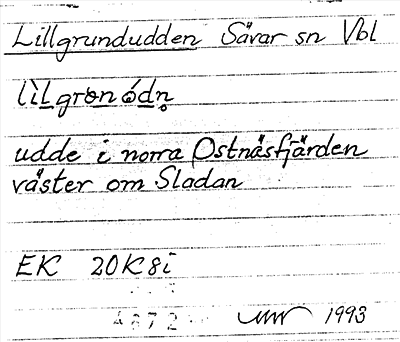 Lillgrundudden Sävar sn Vbl
lìlgrɵnódṇ
udde i norra Ostnäsfjärden
väster om Sladan
EK 20K8i
4872
1993